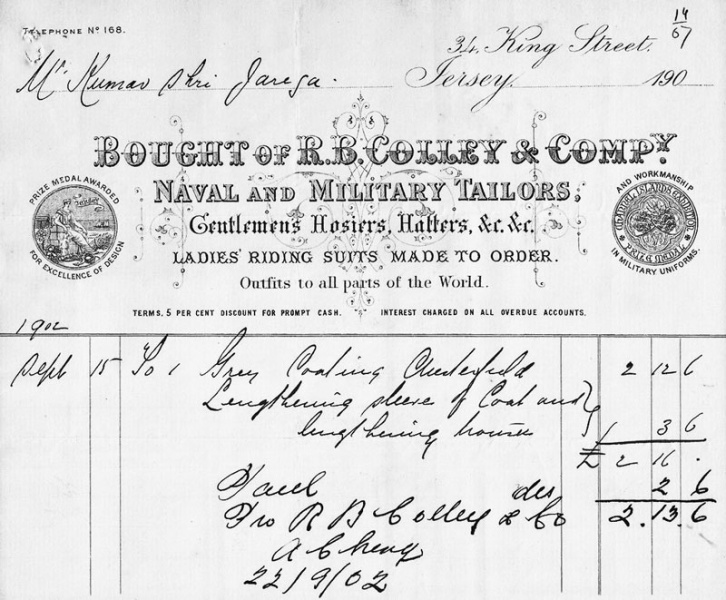 TELEPHONE Nº 168.
14/67
34, King Street.
Mr Kumar Shri Jareja.
Jersey, 190
BOUGHT OF R.B. COLLEY & COMPY.
NAVAL AND MILITARY TAILORS,
Gentlemen's Hosiers, Hatters, &c. &c.
LADIES' RIDING SUITS MADE TO ORDER.
Outfits to all parts of the World.
PRIZE MEDAL AWARDED
FOR EXCELLENCE OF DESIGN
AND WORKMANSHIP
IN MILITARY UNIFORMS.
CHANNEL ISLANDS EXHIBITION
PRIZE MEDAL
TERMS, 5 PER CENT DISCOUNT FOR PROMPT CASH. INTEREST CHARGED ON ALL OVERDUE ACCOUNTS.
1902
Sept 15 To 1 Grey Coating Chesterfield 2 12 6
Lengthening sleeve of Coat and
lengthening 3 6
£ 2 16 .
Paid dis 2 6
Pro R B Colley & Co 2.13.6
22/9/02